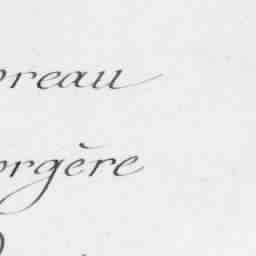 oreau
orgère